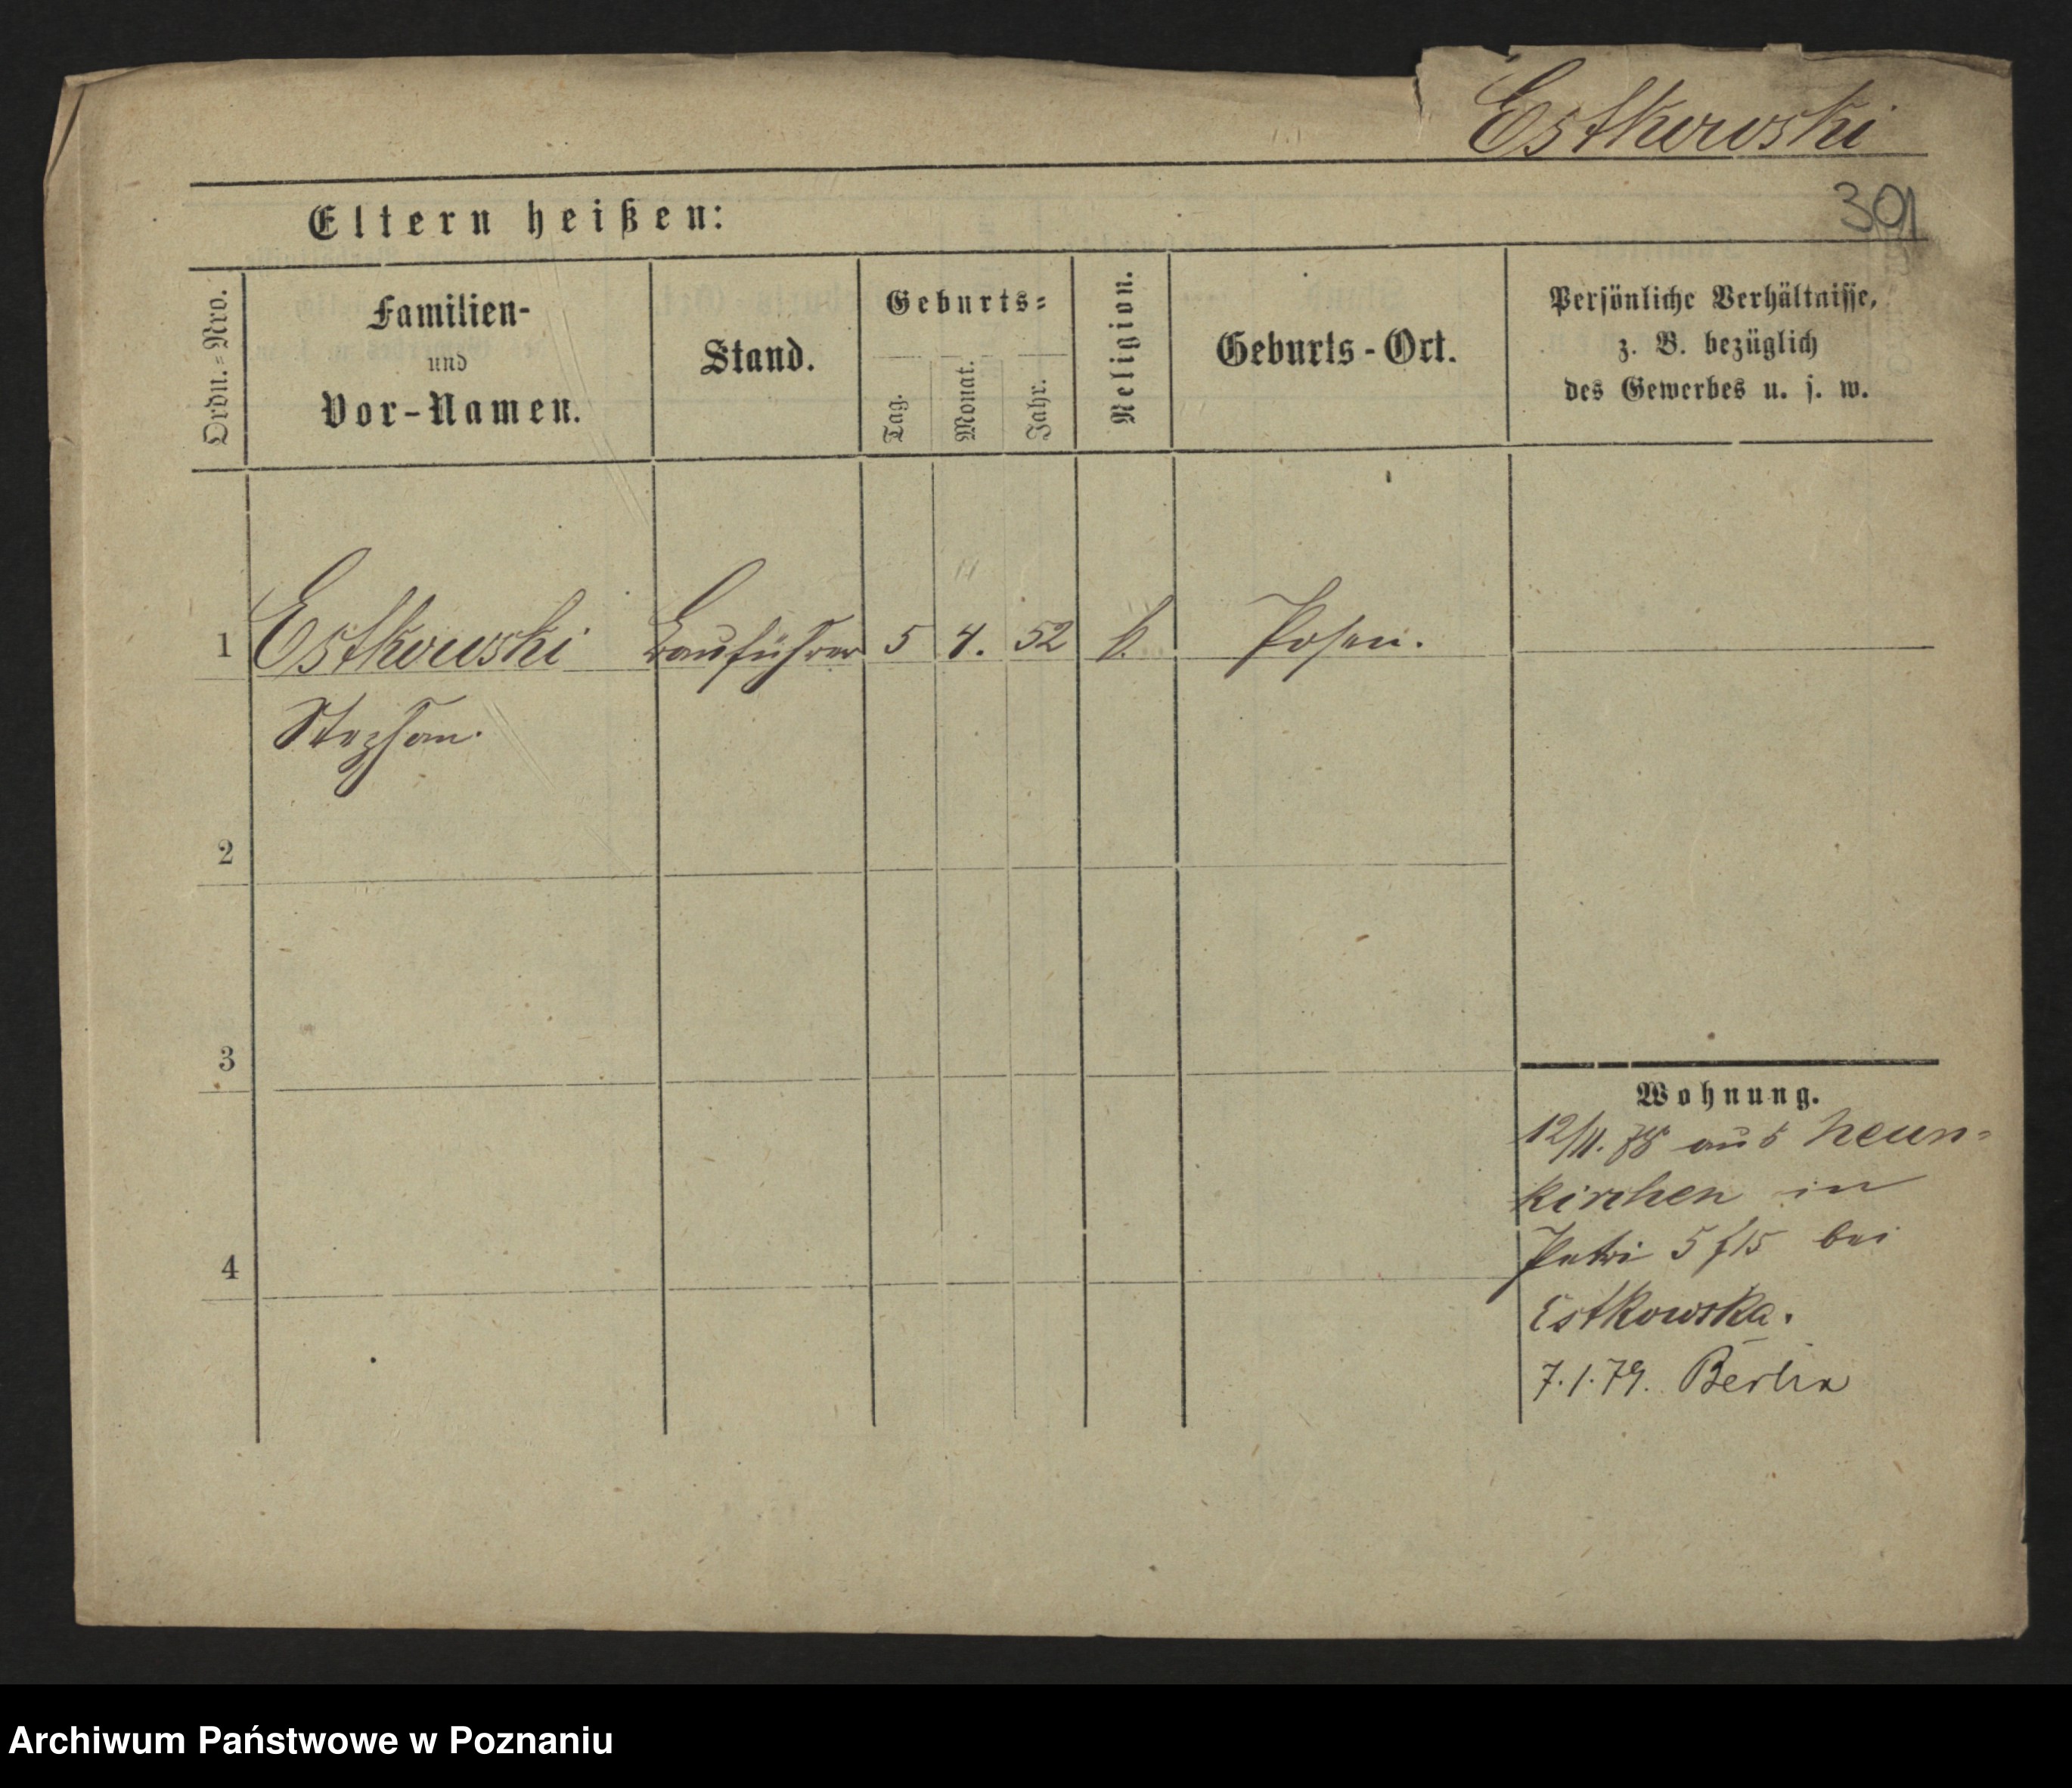 Estkowski
301
Eltern heißen:
Ordn.=Nro.
Familien-
und
Vor-Namen.
Stand.
Geburts=
Tag.
Monat.
Jahr.
Religion.
Geburts-Ort.
Persönliche Verhältnisse,
z. B. bezüglich
des Gewerbes u. s. w.
1 Estkowski Bauführer 5 4. 52 k. Posen.
Stephan.
2
3
4
Wohnung.
12/11. 78 aus Neun=
kirchen in
Petri 5 f15 bei
Estkowska.
7.1.79. Berlin
Archiwum Państwowe w Poznaniu